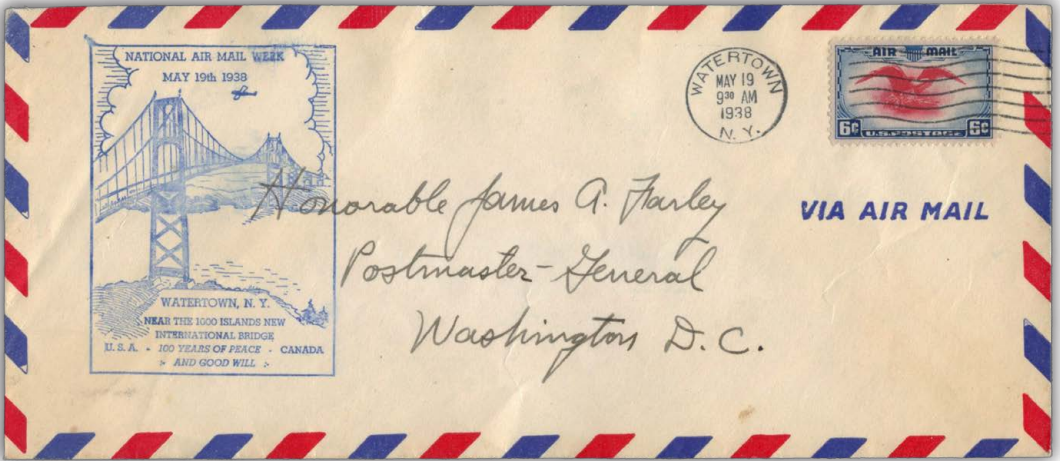 NATIONAL AIR MAIL WEEK
MAY 19th 1938
WATERTOWN, N. Y.
NEAR THE 1000 ISLANDS NEW
INTERNATIONAL BRIDGE
U. S. A. - 100 YEARS OF PEACE - CANADA
AND GOOD WILL
WATERTOWN
MAY 19
9 30 AM
1938
N. Y.
AIR MAIL
6c U.S. POSTAGE 6c
VIA AIR MAIL
Honorable James A. Farley
Postmaster-General
Washington D. C.